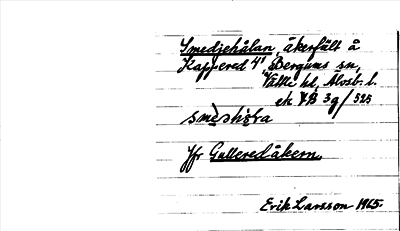 Smedjehålan, åkerfält å
Kapp-ered 4¹ Bergums sn,
Vättle hd, Älvsb. l.
ek 7B 3g/525
Jfr Gulleredåkern.
Erik Larsson 1965.